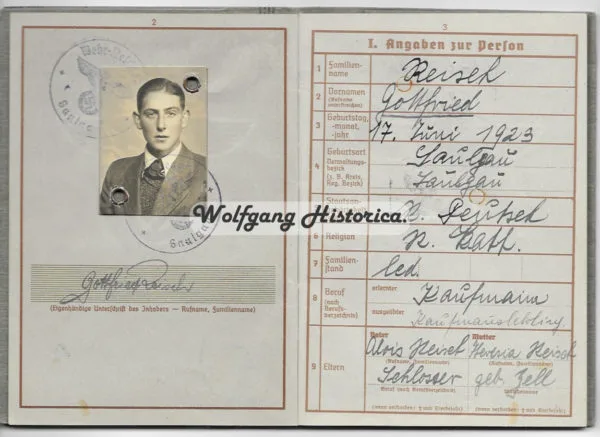 2
Wehr-Be
Wolfgang Historica.
Gottfried Reisch
(Eigenhändige Unterschrift des Inhabers — Rufname, Familienname)
3
I. Angaben zur Person
1 Familien-
name
Reisch
2 Vornamen
(Rufname
unterstreichen)
Gottfried
3 Geburtstag,
-monat,
-jahr
17. Juni 1923
4 Geburtsort
Verwaltungs-
bezirk
(z. B. Kreis,
Reg. Bezirk)
Saulgau
Saulgau
Staatsan-
Deutsch
6 Religion
R. Kath.
7 Familien-
stand
led.
8 Beruf
(nach
Berufs-
verzeichnis)
erlernter
Kaufmann
ausgeübter
Kaufmannslehrling
9 Eltern
Vater
Mutter
Alois Reisch
Reisch
(Rufname, Familienname)
(Rufname, Familienname)
Schlosser
geb. Zell
Beruf (nach Berufsverzeichnis)
(wenn verstorben: † und Sterbejahr)
(wenn verstorben: † und Sterbejahr)